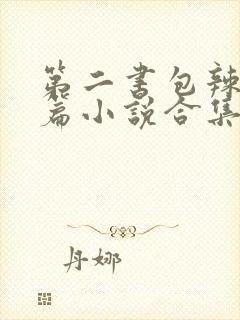 第二书包辣
篇小说合集
丹娜